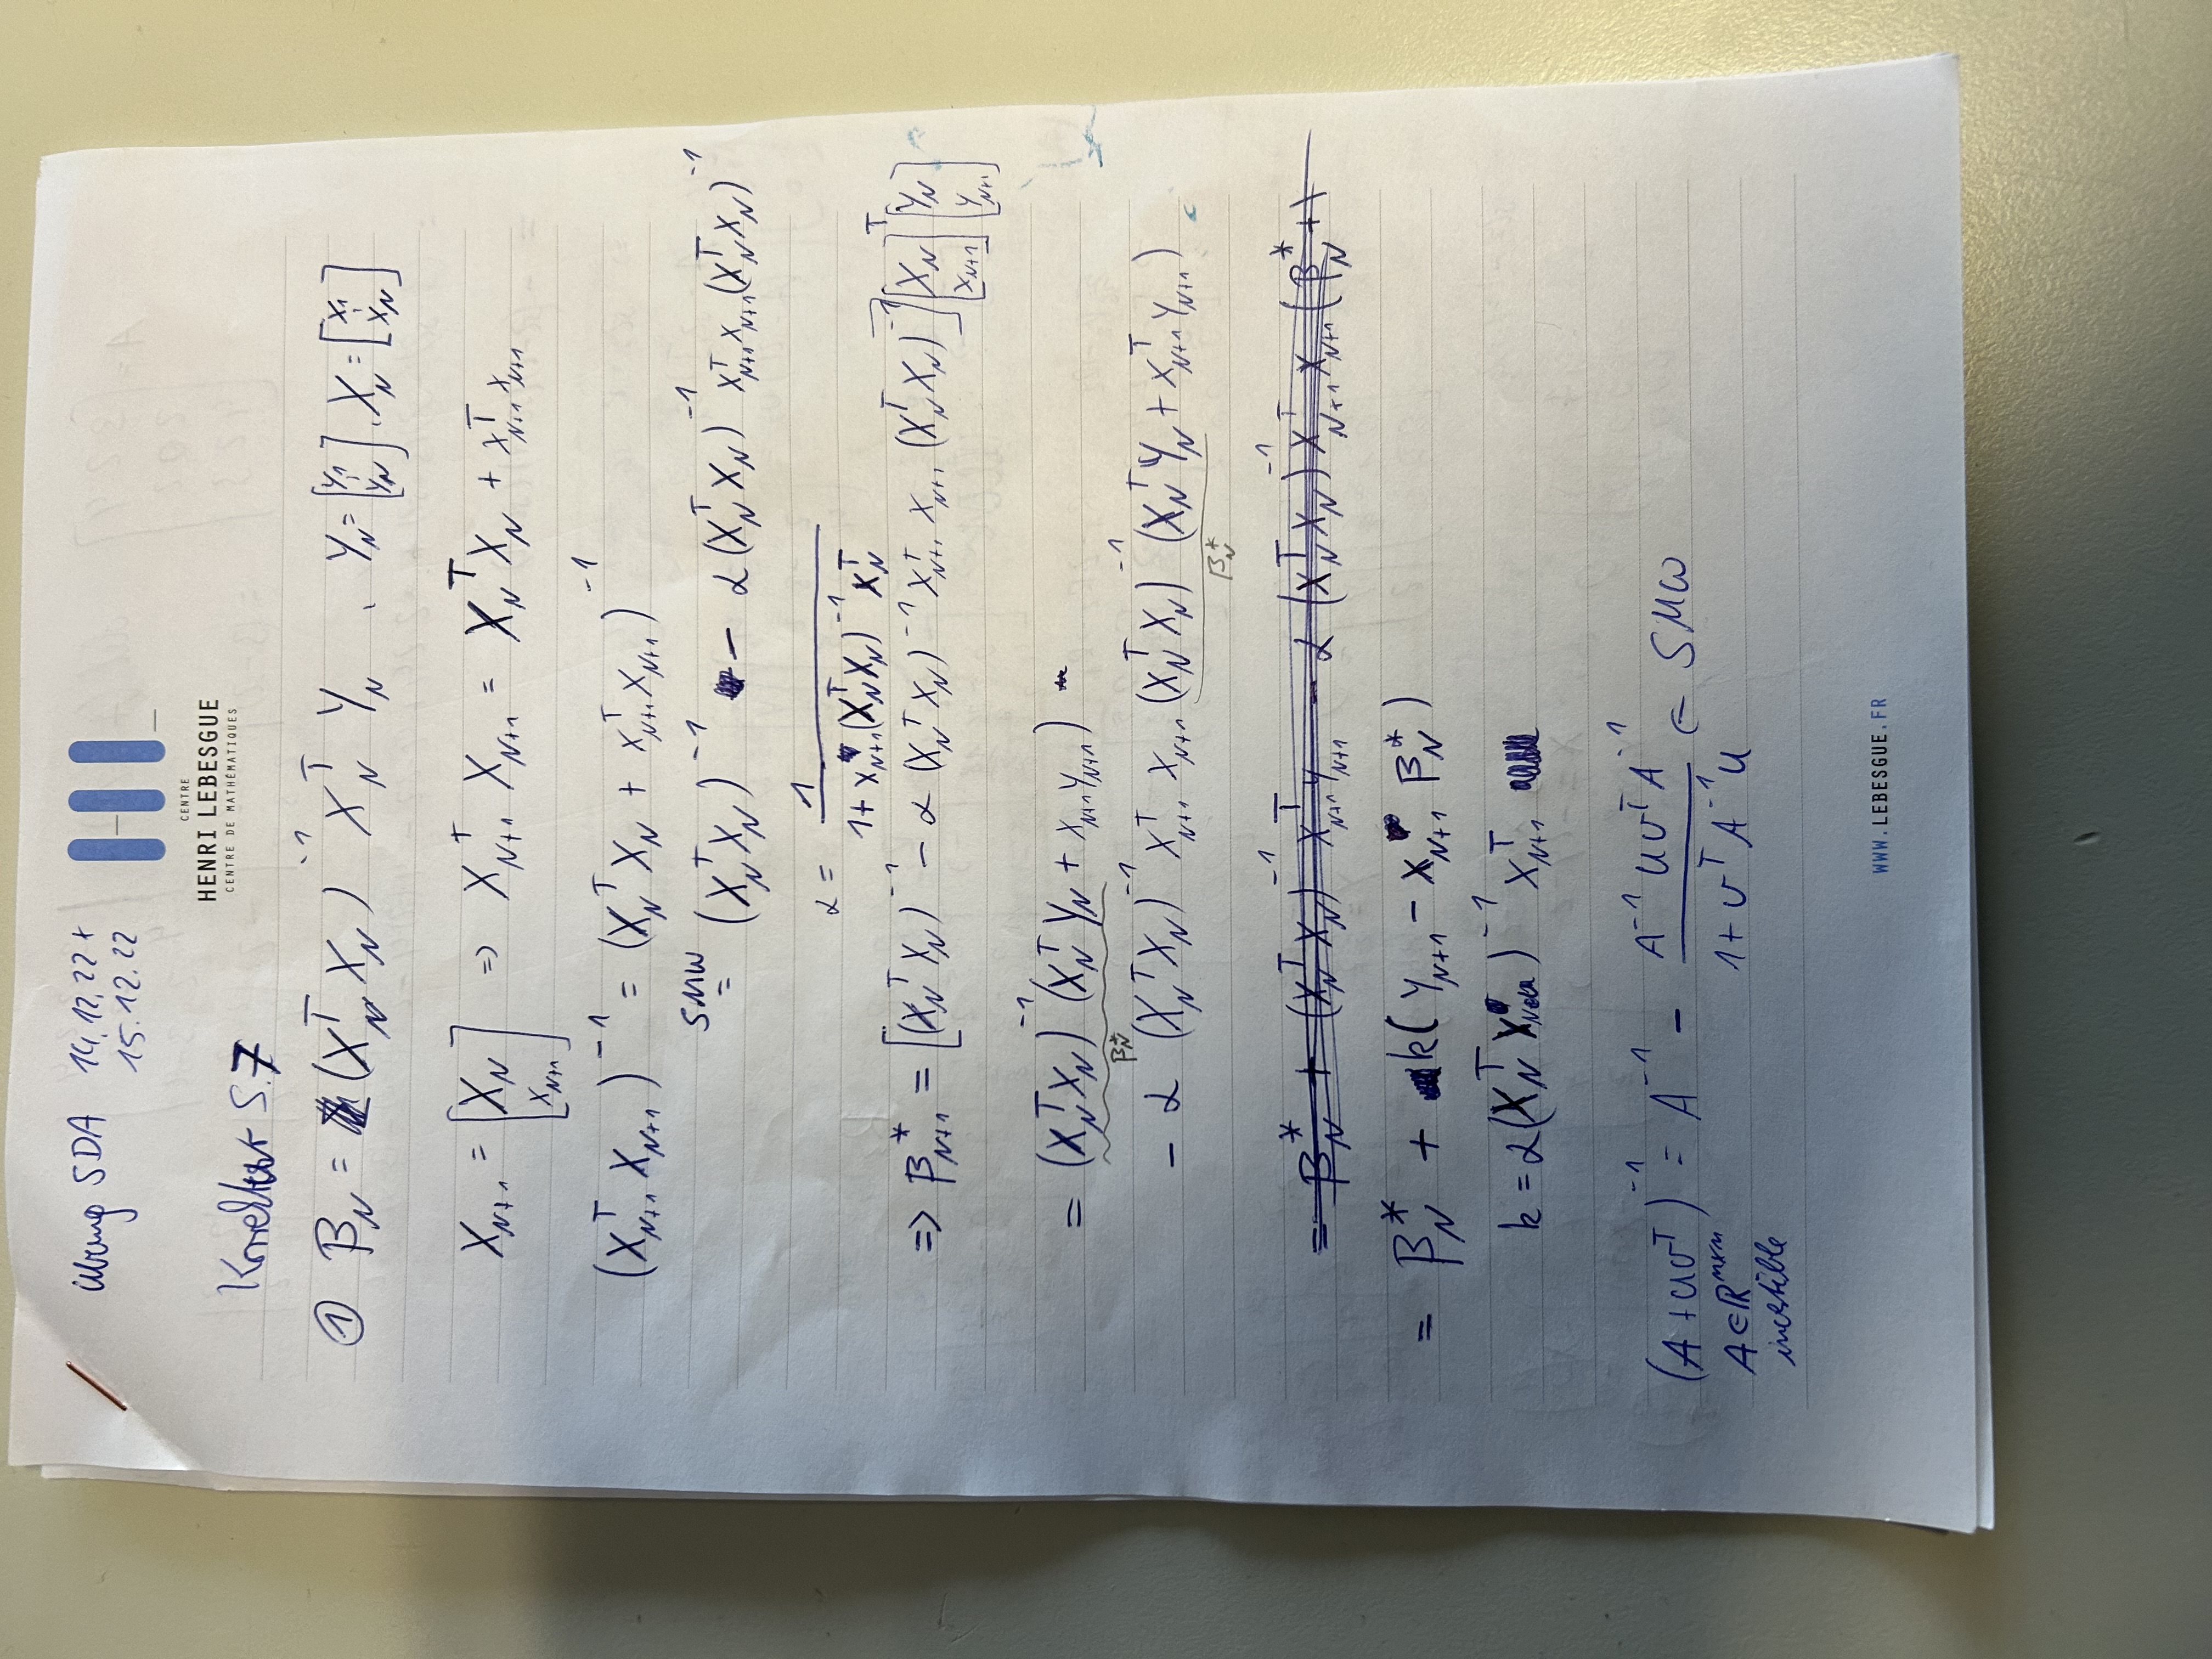 Übung SDA 14.12.22 +
15.12.22
CENTRE
HENRI LEBESGUE
CENTRE DE MATHÉMATIQUES
Korrektur S.7
① β_N = (X_N^T X_N)^{-1} X_N^T Y_N , Y_N = [y_1 ⋮ y_N], X_N = [x_1 ⋮ x_N]
X_{N+1} = [X_N x_{N+1}] ⇒ X_{N+1}^T X_{N+1} = X_N^T X_N + x_{N+1}^T x_{N+1}
(X_{N+1}^T X_{N+1})^{-1} = (X_N^T X_N + x_{N+1}^T x_{N+1})^{-1}
SMW = (X_N^T X_N)^{-1} - α (X_N^T X_N)^{-1} x_{N+1}^T x_{N+1} (X_N^T X_N)^{-1}
α = 1 / (1 + x_{N+1} (X_N^T X_N)^{-1} x_N^T)
⇒ β_{N+1}^* = [(X_N^T X_N)^{-1} - α (X_N^T X_N)^{-1} x_{N+1}^T x_{N+1} (X_N^T X_N)^{-1}] [X_N x_{N+1}]^T [Y_N y_{N+1}]
= (X_N^T X_N)^{-1} (X_N^T Y_N + x_{N+1} y_{N+1}) -
β_N^*
- α (X_N^T X_N)^{-1} x_{N+1}^T x_{N+1} (X_N^T X_N)^{-1} (X_N^T Y_N + x_{N+1}^T y_{N+1})
β_N^*
= β_N^* + (X_N^T X_N)^{-1} x_{N+1}^T y_{N+1} - α (X_N^T X_N)^{-1} x_{N+1}^T x_{N+1} (β_N^* +
= β_N^* + k (y_{N+1} - x_{N+1} β_N^*)
k = α (X_N^T X_N)^{-1} x_{N+1}^T
(A + uv^T)^{-1} = A^{-1} - (A^{-1} u v^T A^{-1}) / (1 + v^T A^{-1} u) ← SMW
A ∈ ℝ^{n×n}
WWW.LEBESGUE.FR